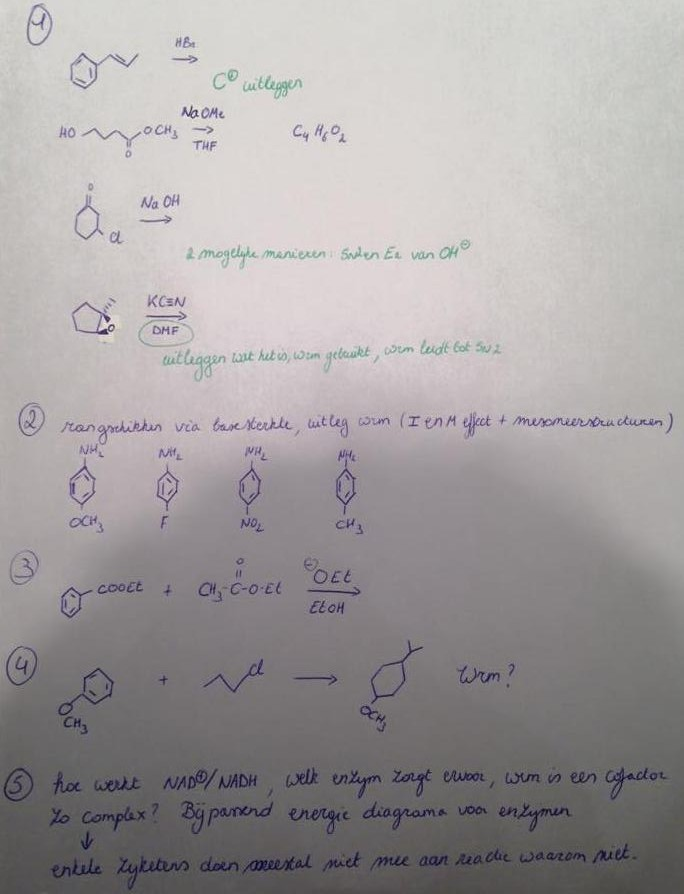 1
HBr
C⊕ uitleggen
HO OCH3 O NaOMe THF C4H6O2
O Cl NaOH
2 mogelijke manieren: SN1 en E2 van OH⊖
O KC≡N DMF
uitleggen wat het is, wrm gebruikt, wrm leidt tot SN2
2 rangschikken via basesterkte, uitleg wrm (I en M effect + mesomeerstructuren)
NH2 NH2 NH2 NH2
OCH3 F NO2 CH3
3 COOEt + CH3-C-O-Et O ⊖OEt EtOH
4 O CH3 + Cl OCH3 Wrm?
5 hoe werkt NAD⊕/NADH, welk enzym zorgt ervoor, wrm is een cofactor
zo complex? Bijpassend energie diagrama voor enzymen
enkele zijketens doen meestal niet mee aan reactie waarom niet.